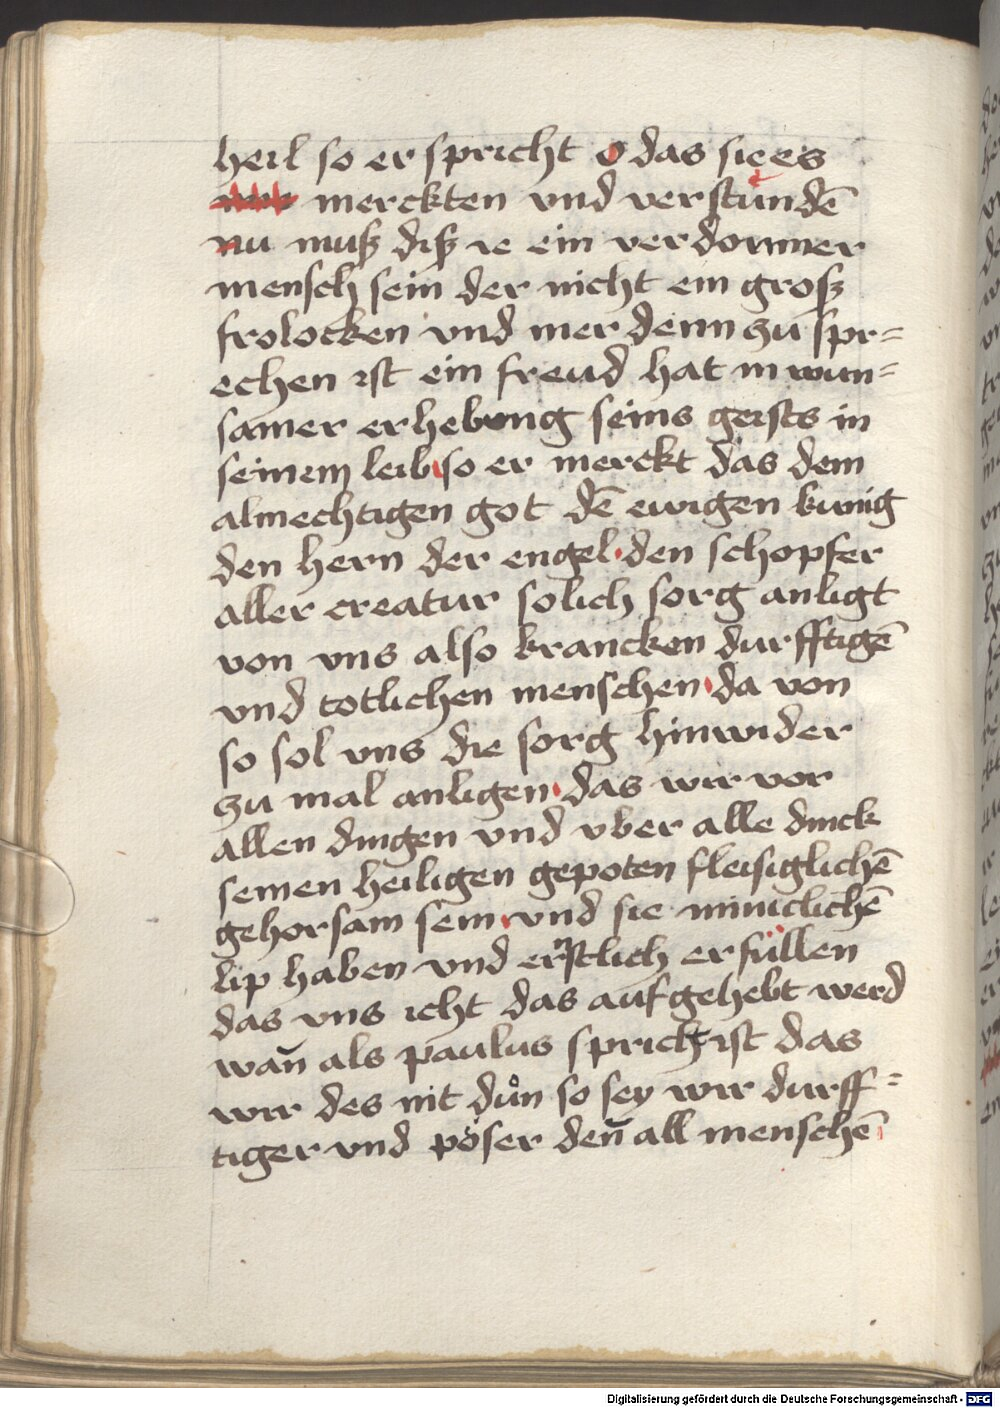 heil so er spricht O das sie es
merckten vnd verstundē
nu muß diß ie ein verdorrner
mensch sein der nicht ein groß
frolocken vnd mer denn zu spr=
echen ist ein freud hat in wun=
samer erhebung seins geists in
seinem leib so er merckt das dem
almechtigen got dē ewigen kunig
den hern der engel den schopfer
aller creatur solich sorg anligt
von vns also krancken durfftigē
vnd totlichen menschen da von
so sol vns die sorg hinwider
zu mal anligen das wir vor
allen dingen vnd vber alle dinck
seinen heiligen gepoten fleisiglichē
gehorsam sein vnd sie miniclichē
lip haben vnd ernstlich erfüllen
das vns icht das aufgehebt werd
wan̄ als paulus spricht ist das
wir des nit důn so sey wir durff=
tiger vnd pöser den̄ all menschē
Digitalisierung gefördert durch die Deutsche Forschungsgemeinschaft - DFG